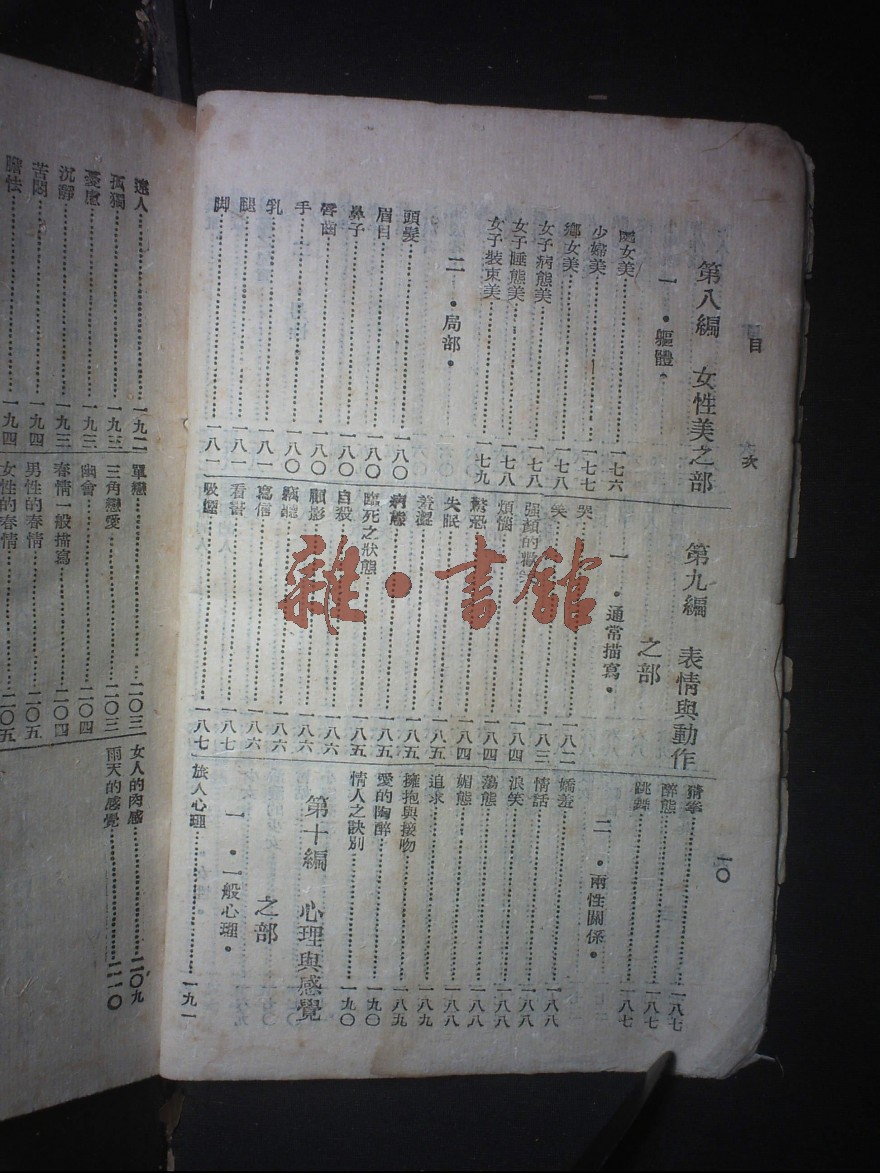 目 次
一〇
第八編 女性美之部
一・軀體・
少婦美……一七七
鄉女美……一七八
女子病態美……一七八
女子睡態美……一七八
女子裝束美……一七九
二・局部・
頭髮……一八〇
眉目……一八〇
鼻子……一八〇
唇齒……一八〇
手……一八〇
乳……一八一
腿……一八一
脚……一八一
第九編 表情與動作之部
一・通常描寫・
哭……一八二
笑……一八三
強顏的歡笑……一八四
煩惱……一八四
驚恐……一八四
失眠……一八五
羞澀……一八五
病態……一八五
臨死之狀態……一八五
自殺……一八六
顧影……一八六
竊聽……一八六
寫信……一八六
看書……一八七
吸煙……一八七
猜拳……一八七
醉態……一八七
跳舞……一八七
二・兩性關係・
嬌羞……一八八
情話……一八八
浪笑……一八八
蕩態……一八八
媚態……一八八
追求……一八九
擁抱與接吻……一八九
愛的陶醉……一九〇
情人之訣別……一九〇
第十編 心理與感覺之部
一・一般心理・
旅人心理……一九一
逵人……一九二
孤獨……一九三
憂慮……一九三
沉靜……一九三
苦悶……一九四
膽怯……一九四
單戀……二〇三
三角戀愛……二〇三
幽會……二〇四
春情一般描寫……二〇四
男性的春情……二〇五
女性的春情……二〇五
女人的肉感……二〇九
雨天的感覺……二一〇
雜·書館